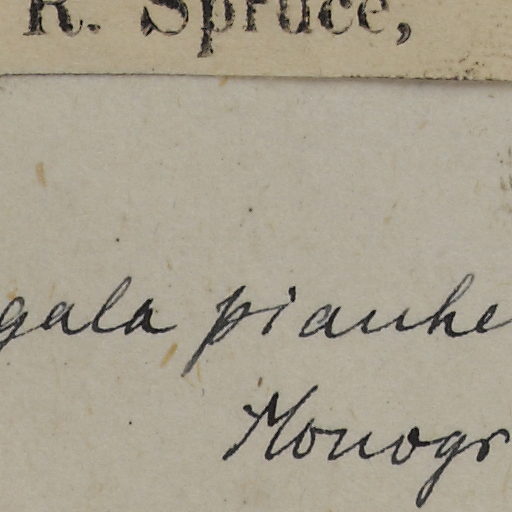 R. Spruce,
gala piauhe
Monogr